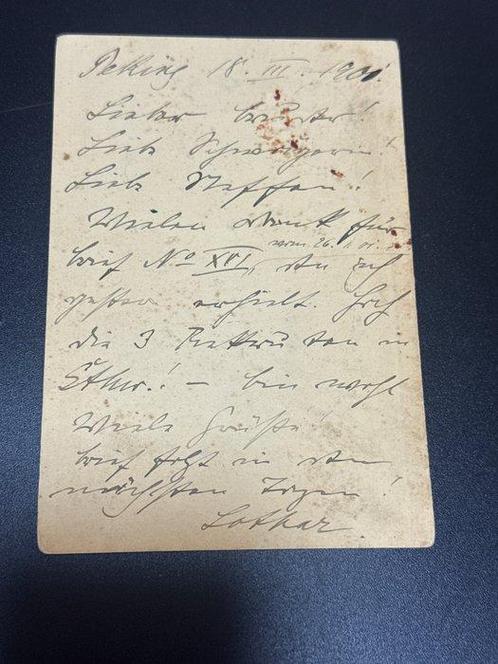 Peking 18. III. 1901.
Lieber Bruder!
Liebe Schwägerin!
Liebe Neffen!
Vielen Dank für
Brief No XVI, vom 26. I. 01. den ich
gestern erhielt. Hoch
die 3 in
! – bin wohl
Viele Grüße!
Brief folgt in den
nächsten Tagen!
Lothar